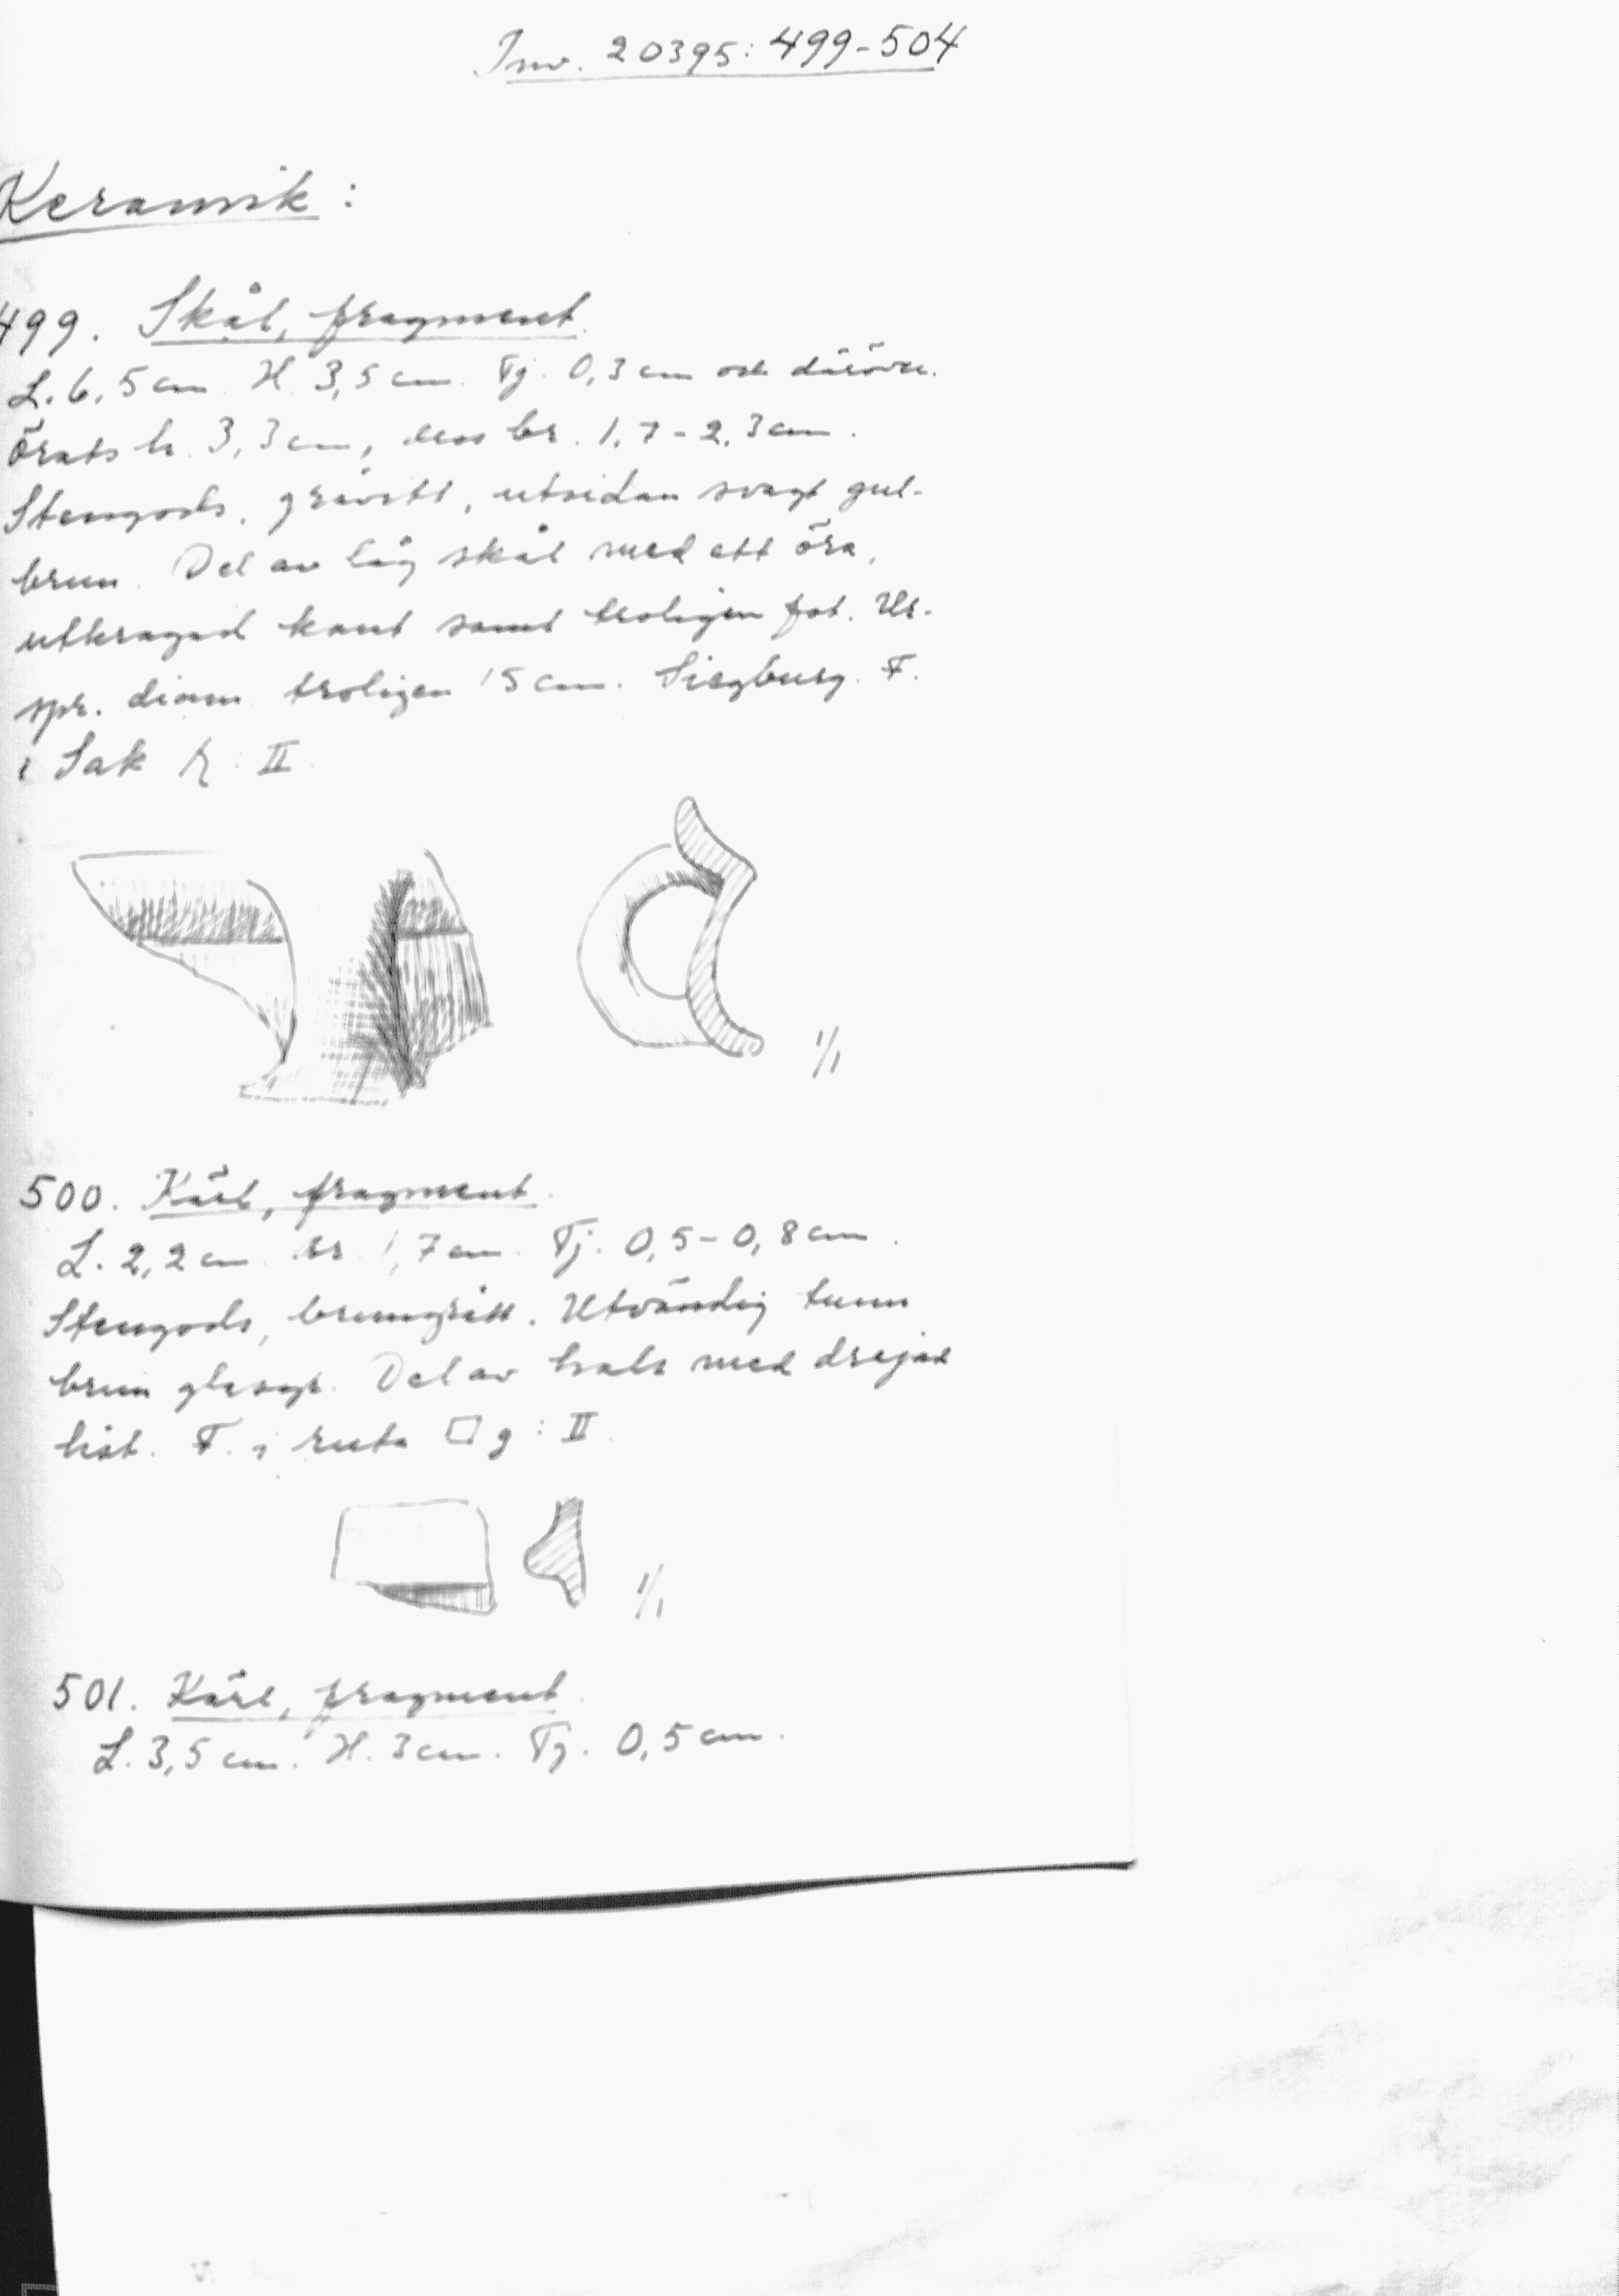 Inv. 20395: 499-504
Keramik:
499. Skål, fragment.
L. 6,5 cm H. 3,5 cm. Tj. 0,3 cm och däröver.
Örats h. 3,3 cm, dess br. 1,7-2,3 cm.
Stengods, gråvitt, utsidan svagt gul-
brun. Del av låg skål med ett öra,
utkragad kant samt troligen fot. Ur-
spr. diam troligen 15 cm. Siegburg. F.
i Sak : II.
1/1
500. Kärl, fragment.
L. 2,2 cm br 1,7 cm. Tj. 0,5-0,8 cm.
Stengods, brungrått. Utvändig tunn
brun glasyr. Del av hals med drejad
list. F. i ruta □ g : II.
1/1
501. Kärl, fragment.
L. 3,5 cm. H. 3 cm. Tj. 0,5 cm.